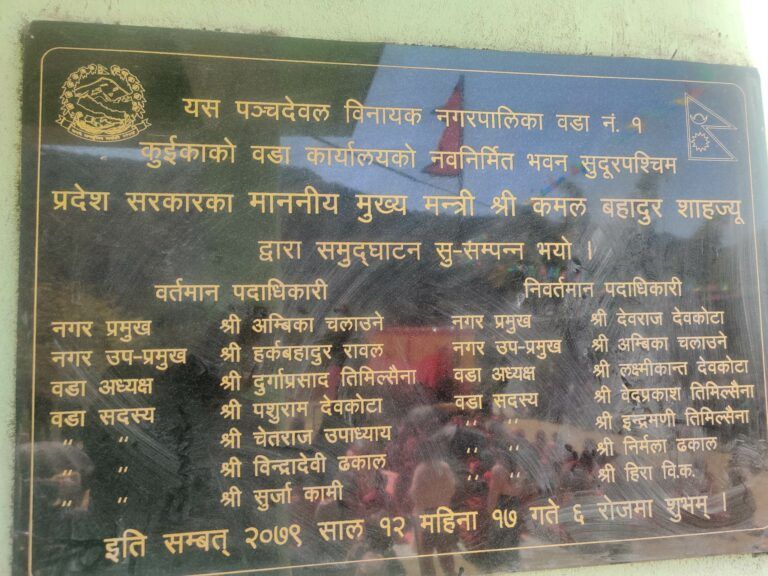 यस पञ्चदेवल विनायक नगरपालिका वडा नं. १
कुईकाको वडा कार्यालयको नवनिर्मित भवन सुदूरपश्चिम
प्रदेश सरकारका माननीय मुख्य मन्त्री श्री कमल बहादुर शाहज्यू
द्वारा समुद्घाटन सु-सम्पन्न भयो ।
वर्तमान पदाधिकारी
नगर प्रमुख श्री अम्बिका चलाउने
नगर उप-प्रमुख श्री हर्कबहादुर रावल
वडा अध्यक्ष श्री दुर्गाप्रसाद तिमिल्सैना
वडा सदस्य श्री पशुराम देवकोटा
,, ,, श्री चेतराज उपाध्याय
,, ,, श्री विन्द्रादेवी ढकाल
,, ,, श्री सुर्जा कामी
निवर्तमान पदाधिकारी
नगर प्रमुख श्री देवराज देवकोटा
नगर उप-प्रमुख श्री अम्बिका चलाउने
वडा अध्यक्ष श्री लक्ष्मीकान्त देवकोटा
वडा सदस्य श्री वेदप्रकाश तिमिल्सैना
,, ,, श्री इन्द्रमणी तिमिल्सैना
,, ,, श्री निर्मला ढकाल
,, ,, श्री हिरा वि.क.
इति सम्बत् २०७९ साल १२ महिना १७ गते ६ रोजमा शुभम् ।